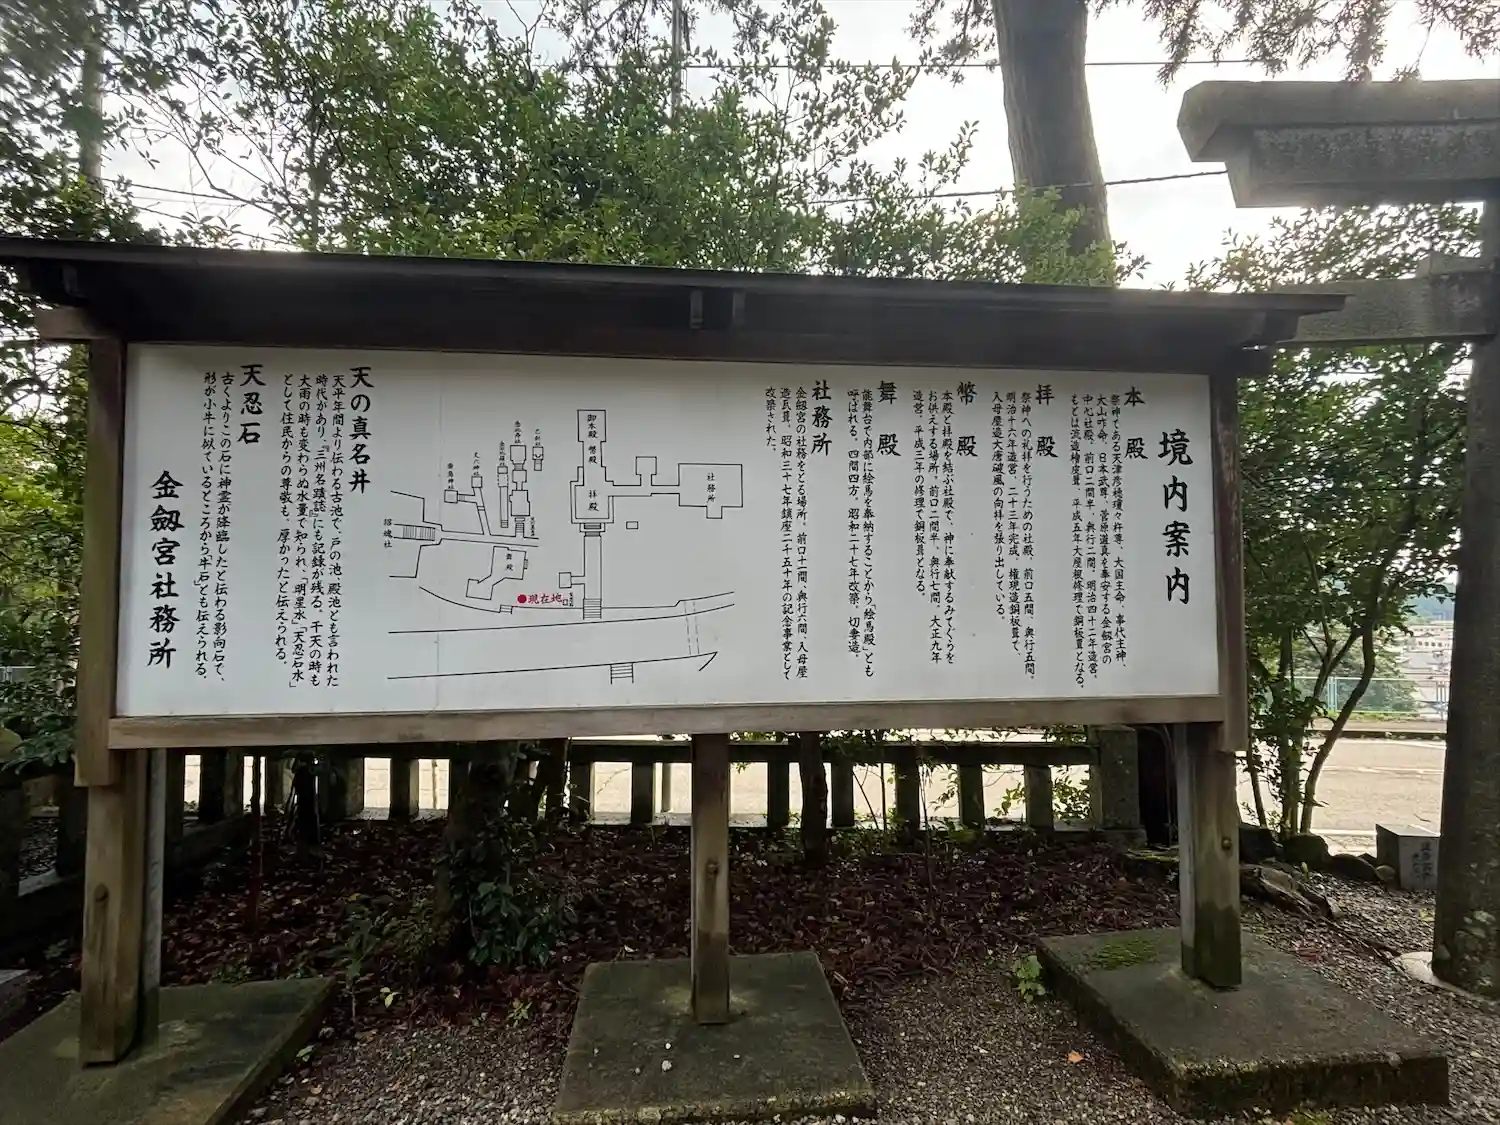 境内案内
本殿
祭神である天津彦穂瓊々杵尊、大国主命、事代主神、
大山咋命、日本武尊、菅原道真を奉安する金劔宮の
中心社殿。前口二間半、奥行二間、明治四十二年造営。
もとは流造檜皮葺、平成五年大屋根修理で銅板葺となる。
拝殿
祭神への礼拝を行うための社殿、前口五間、奥行五間。
明治十六年造営、二十三年完成、権現造銅板葺で、
入母屋造大唐破風の向拝を張り出している。
幣殿
本殿と拝殿を結ぶ社殿で、神に奉献するみてぐらを
お供えする場所。前口二間半、奥行七間、大正九年
造営、平成三年の修理で銅板葺となる。
舞殿
能舞台で内部に絵馬を奉納することから「絵馬殿」とも
呼ばれる。四間四方。昭和二十七年改築、切妻造。
社務所
金劔宮の社務をとる場所。前口十一間、奥行六間、入母屋
造瓦葺、昭和三十七年鎮座二千五十年の記念事業として
改築された。
御本殿
幣殿
拝殿
社務所
乙劔社
招魂社
舞殿
●現在地
天の真名井
天平年間より伝わる古池で、戸の池、殿池とも言われた
時代があり、『三州名蹟誌』にも記録が残る。干天の時も
大雨の時も変わらぬ水量で知られ、「明星水」「天忍石水」
として住民からの尊敬も、厚かったと伝えられる。
天忍石
古くよりこの石に神霊が降臨したと伝わる影向石で、
形が小牛に似ているところから「牛石」とも伝えられる。
金劔宮社務所